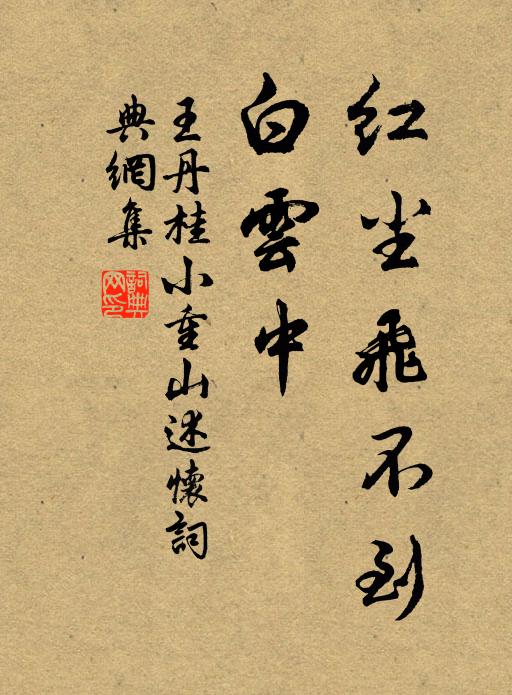 红尘飛不到
白雲中
王丹桂小重山述懷詞
典網集
詞典网印